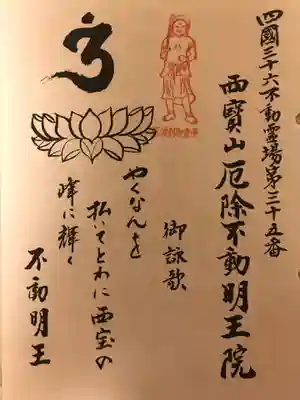 四國三十六不動霊場第三十五番
西寶山厄除不動明王院
御詠歌
やくなんを
払いてとわに西宝の
峰に輝く
不動明王